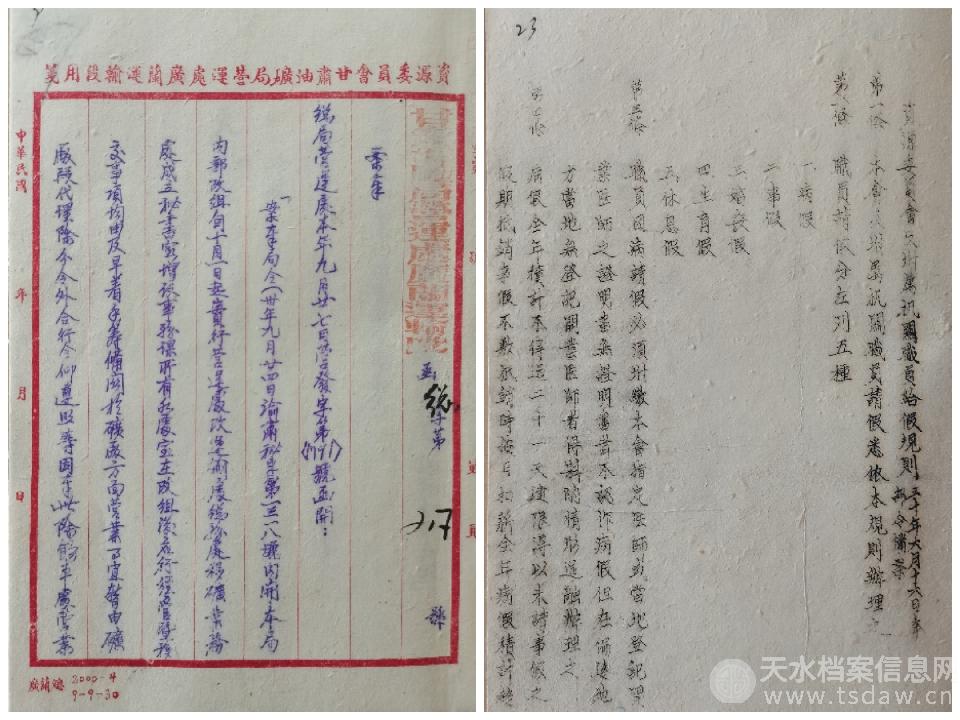 資源委員會甘肅油礦局營運處廣蘭運輸段用箋
函
總字第
217
號
案奉
總局營運處本年九月廿七日營發字第
1791
號函開：
「案奉局令（卅年九月廿四日渝肅秘字第一三一八號內開本局
內部改組自十月一日起實行營業處改
處成立秘書室增設事務課所有
交事項均由及早着手籌備關於礦廠方面營業事宜暫由礦
廠段代理除分令外合行令仰遵照等因奉此除
中華民國
年
月
日
廣蘭總 2000-4
9-9-30
23
資源委員會及附屬機關職員給假規則
三十年六月十六日奉
部令備案
第一條 本會及附屬機關職員請假悉依本規則辦理之
第二條 職員請假分左列五種
一 病假
二 事假
三 婚喪假
四 生育假
五 休息假
第三條 職員因病請假必須附繳本會指定醫師或當地登記開
業醫師之證明書無證明書者不視作病假但在偏僻地
方當地無登記開業醫師者得斟酌情形通融辦理之
病假全年積計不得逾二十一天逾限得以未請事假之
假期抵銷事假不敷抵銷時按日扣薪全年病假積計
天水档案信息网
www.tsdaw.cn